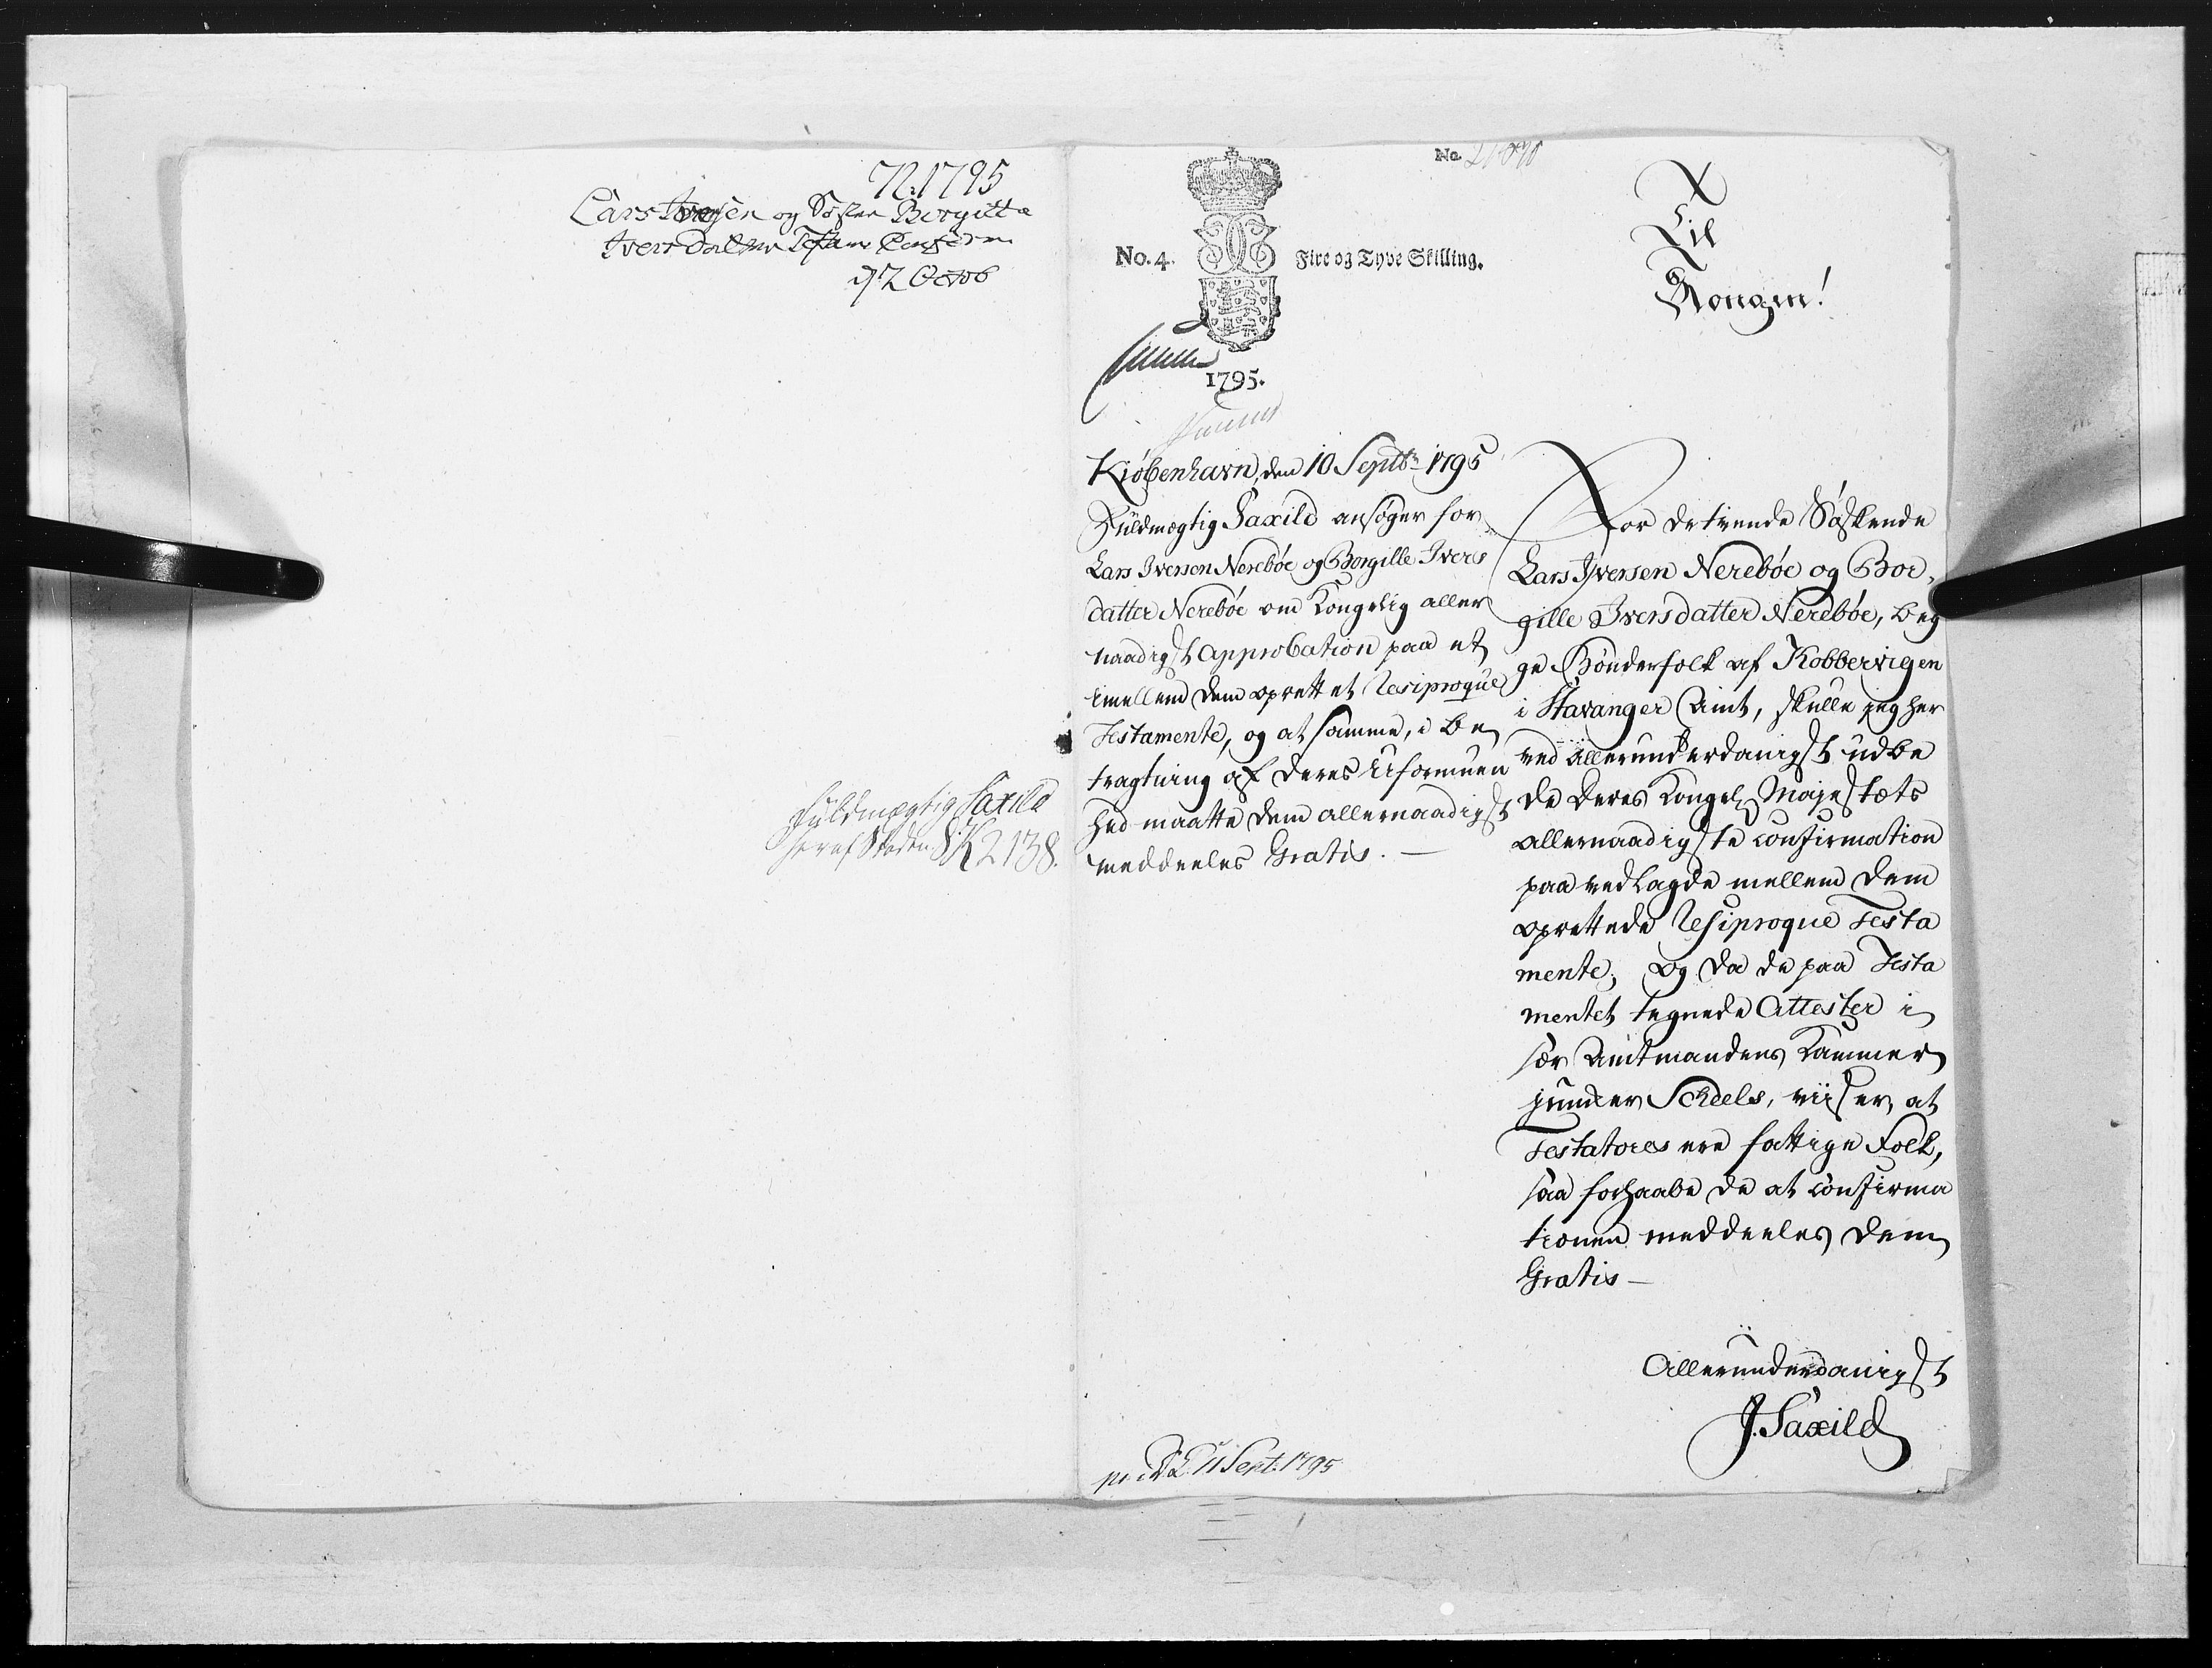 N: 1795
Lars Iversen og Søster Borgille
Iversdatter Testam Confirm
d 2 Octob
Fuldmægtig Saxild
her af Staden S:K 2138.
No.
No. 4. Fire og Tyve Skilling.
1795.
Kiöbenhavn, den 10 Septbr 1795
Fuldmægtig Saxild ansøger for
Lars Iversen Nereböe og Borgille Ivers
datter Nereböe om Kongelig aller
naadigst Approbation paa et
imellem dem oprettet Resiproque
Testamente, og at samme, i Be
tragtning af deres Uformuen
hed maatte dem allernaadigst
meddeeles Gratis. —
pr: 11 Sept: 1795
Til
Kongen!
For de tvende Søskende
Lars Iversen Nereböe og Bor,
gille Iversdatter Nereböe, beg
ge Bönderfolk af Kobbervigen
i Stavanger Amt, skulle jeg her
ved allerunderdanigst udbe
de Deres Kongel Majestæts
allernaadigste Confirmation
paa vedlagde mellem dem
oprettede Resiproque Testa
mente; og da de paa Testa
mentet tegnede Attester i
sær Amtmandens Kammer
junker Scheels, viiser, at
Testatores ere fattige Folk,
saa forhaabe de at Confirma
tionen meddeeles dem
Gratis —
Allerunderdanigst
J. Saxild